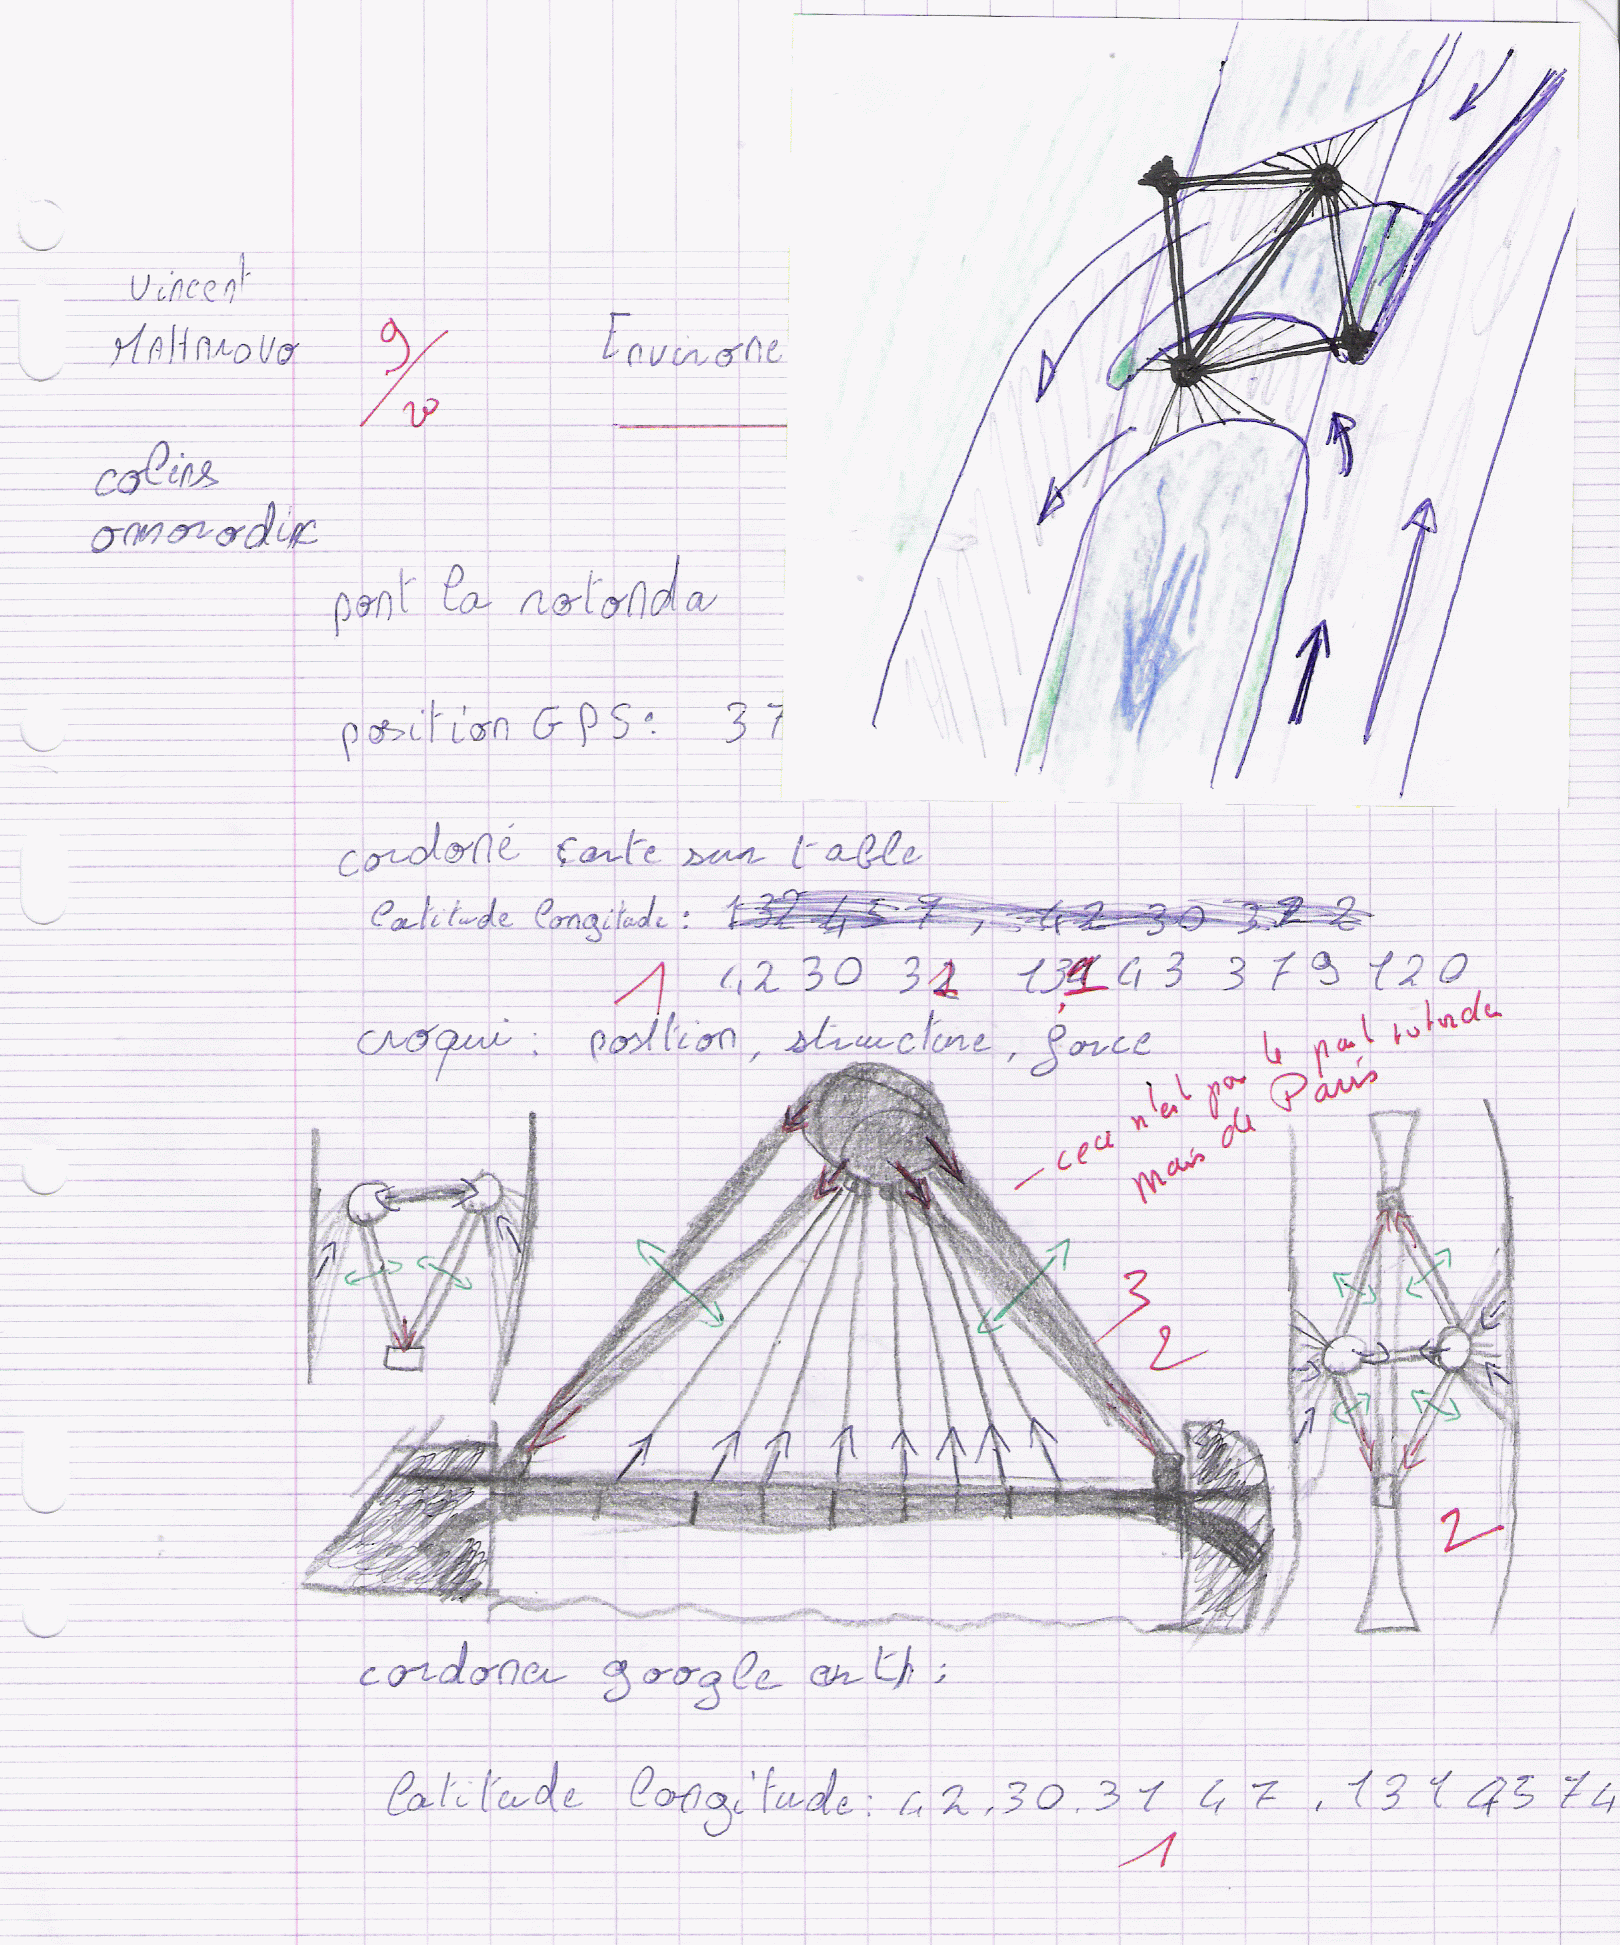 vincent
9/20
Environe
colins
pont la rotonda
position GPS: 37
cordoné carte sur table
latitude longitude:
1
42 30 31 131 43 379 120
croqui: position, structure, force
- ceci n'est pas le pont rotonda
mais de Paris
3
2
2
cordoner google earth:
latitude longitude: 42.30.31 47 . 131 45 74
1